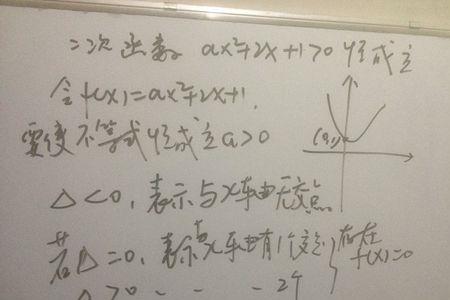 二次函数 ax²+2x+1>0 恒成立
令f(x)=ax²+2x+1,
要使不等式恒成立a>0
(0,1)
△<0,表示与x轴无交点
若△=0,表示与x轴有1个交点 } 存在 f(x)=0
△>0 - - - 2个